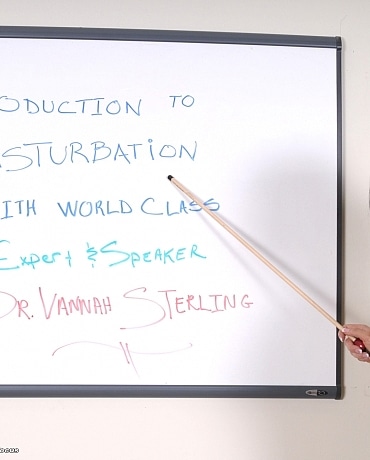 ODUCTION TO
STURBATION
ITH WORLD CLASS
Expert & SPEAKER
DR. VANNAH STERLING
ocus